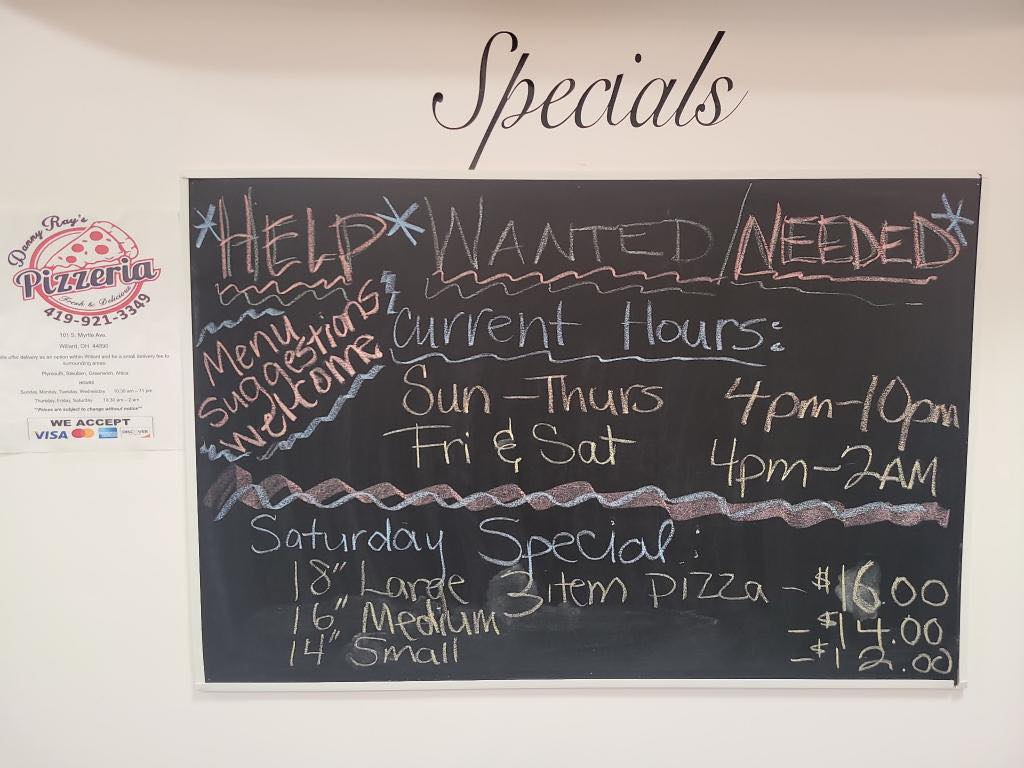 Specials
*HELP* WANTED/NEEDED*
Menu
Suggestions
Welcome
Current Hours:
Sun - Thurs 4pm-10pm
Fri & Sat 4pm-2AM
Saturday Special:
18" Large 3 item pizza - $16.00
16" Medium - $14.00
14" Small - $12.00
Danny Ray's
Pizzeria
Fresh & Delicious
419-921-3349
101 S. Myrtle Ave.
Willard, OH 44890
We offer delivery as an option within Willard and for a small delivery fee to
surrounding areas:
Plymouth, Steuben, Greenwich, Attica
HOURS
Sunday, Monday, Tuesday, Wednesday 10:30 am - 11 pm
Thursday, Friday, Saturday 10:30 am - 2 am
**Prices are subject to change without notice**
WE ACCEPT
VISA DISCOVER